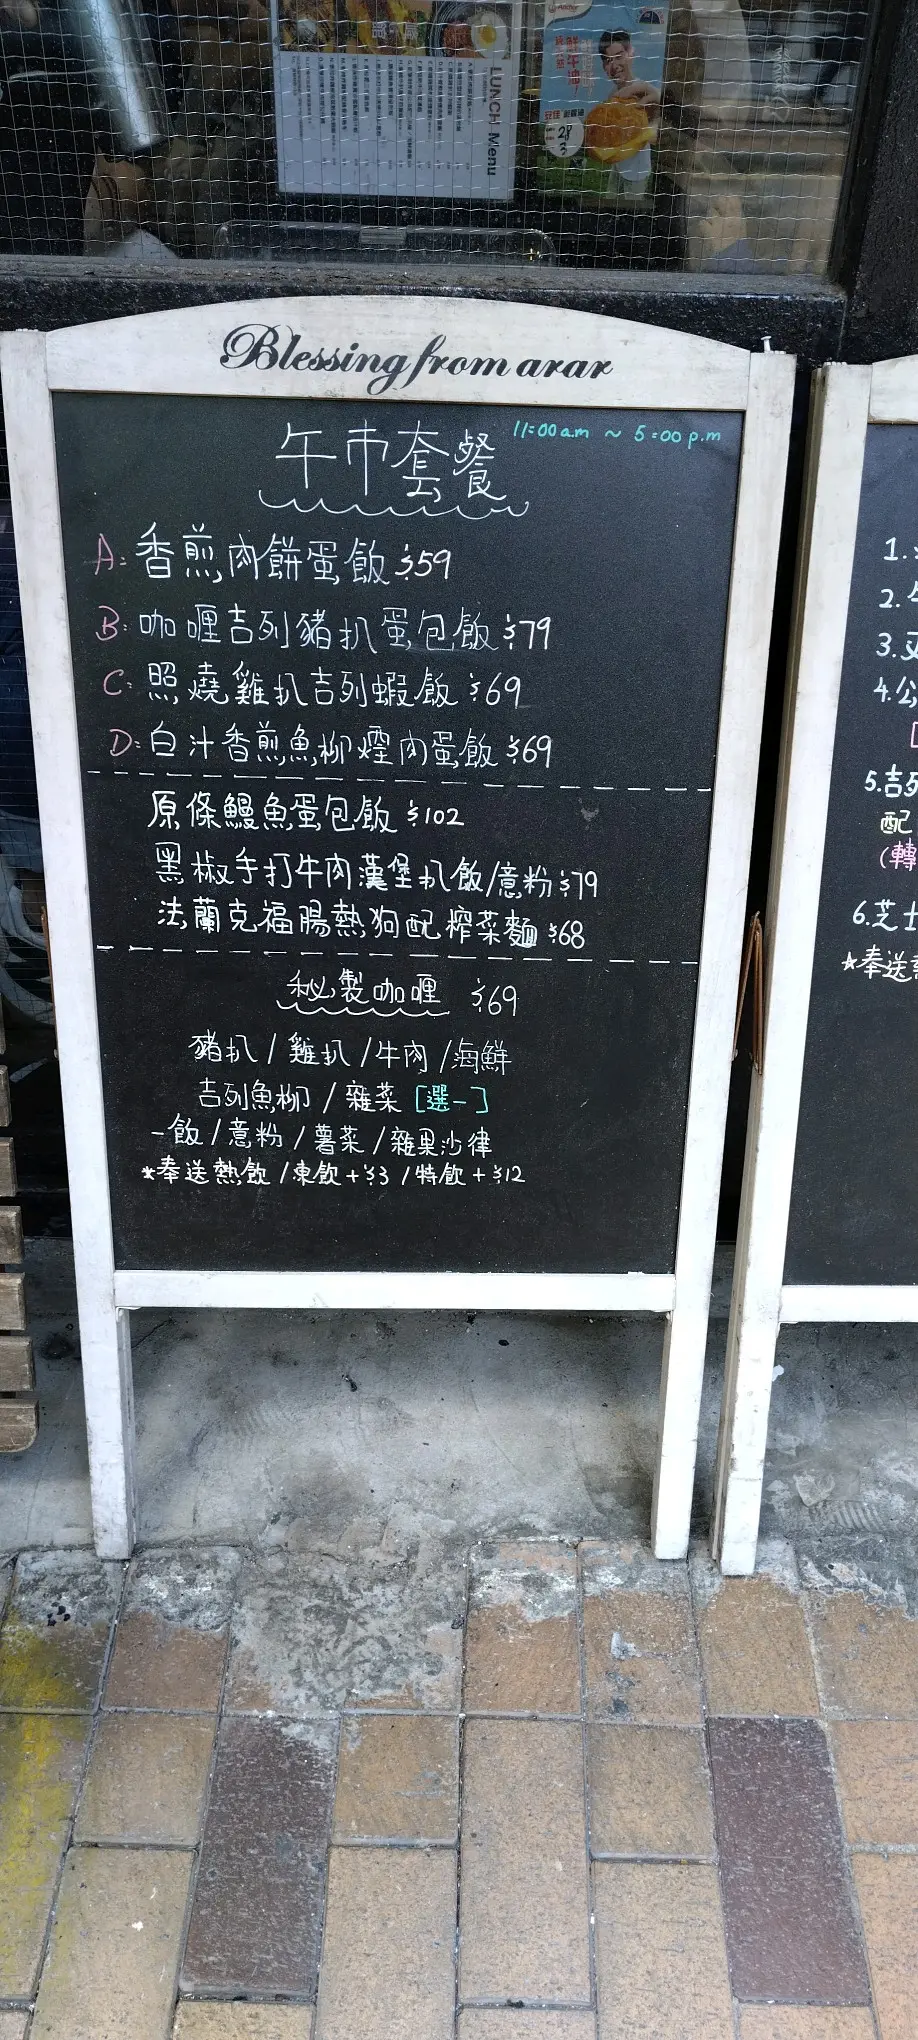 LUNCH Menu
Blessing from arar
午市套餐
11:00 a.m ~ 5:00 p.m
A: 香煎肉餅蛋飯 $59
B: 咖喱吉列豬扒蛋包飯 $79
C: 照燒雞扒吉列蝦飯 $69
D: 白汁香煎魚柳煙肉蛋飯 $69
原條鰻魚蛋包飯 $102
黑椒手打牛肉漢堡扒飯/意粉 $79
法蘭克福腸熱狗配榨菜麵 $68
秘製咖喱 $69
豬扒 / 雞扒 / 牛肉 / 海鮮
吉列魚柳 / 雜菜 [選一]
-飯 / 意粉 / 薯菜 / 雜果沙律
*奉送熱飲 / 凍飲+$3 / 特飲+$12
1.
2.
3.
4.公
5.吉列
配
(轉
6.芝士
*奉送